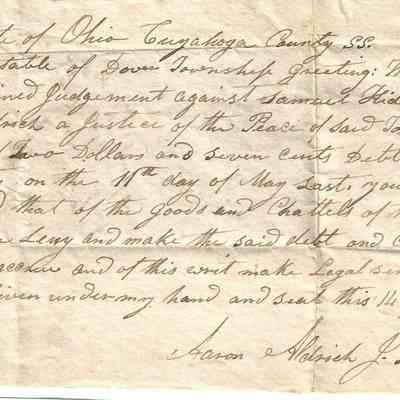 te of Ohio Cuyahoga County SS.
stable of Dover Township Greeting: Wh
ined Judgement against Samuel
drich a Justice of the Peace of said To
Two Dollars and seven cents Debt
on the 11th day of May last, you
d that of the goods and Chattels of
e Levy and make the said debt and C
accrue and of this writ make Legal ser
iven under my hand and seal this 14
Aaron Aldrich J.